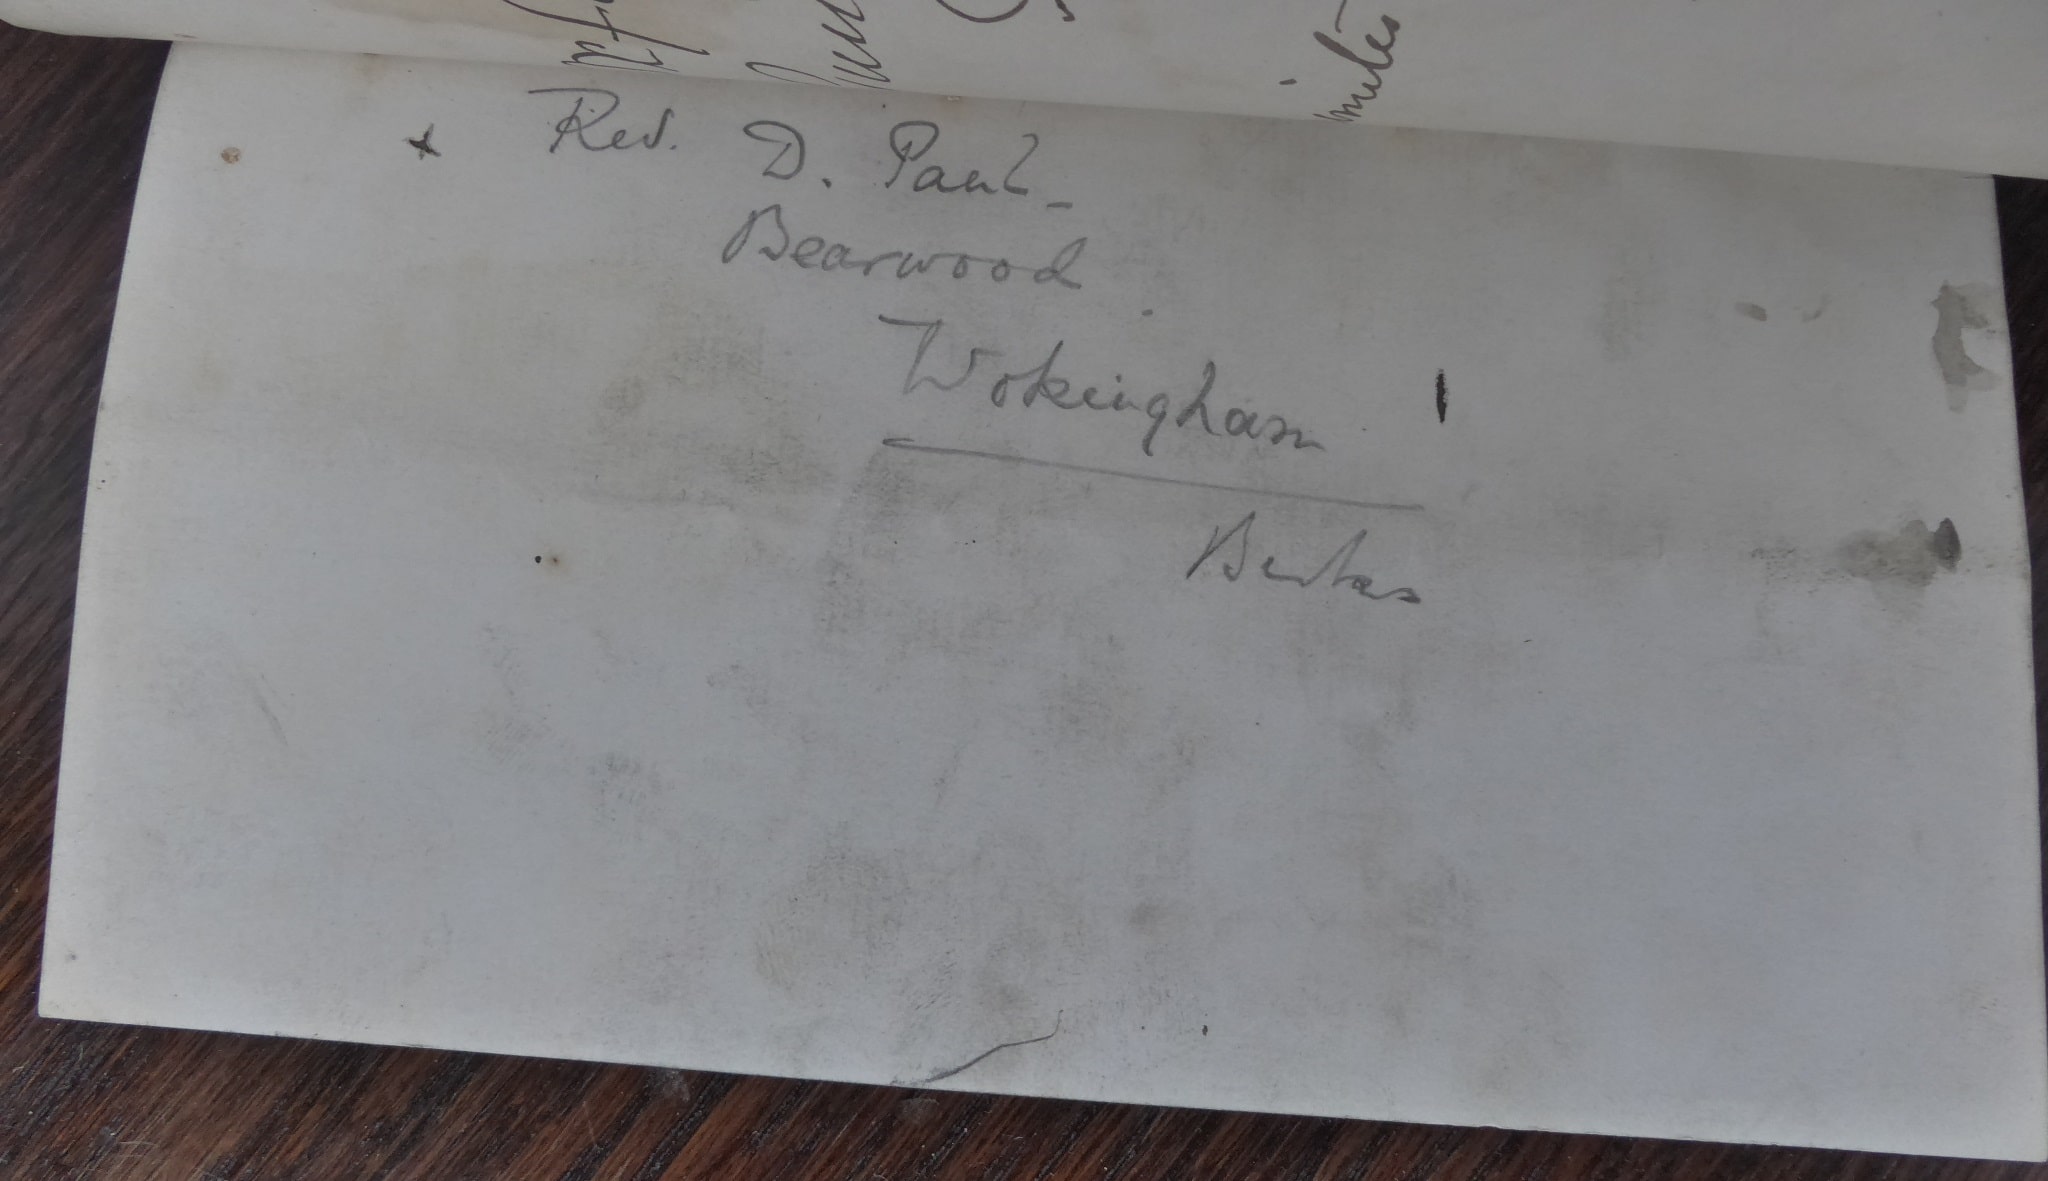 Rev. D. Paul -
Bearwood
Wokingham
Berks